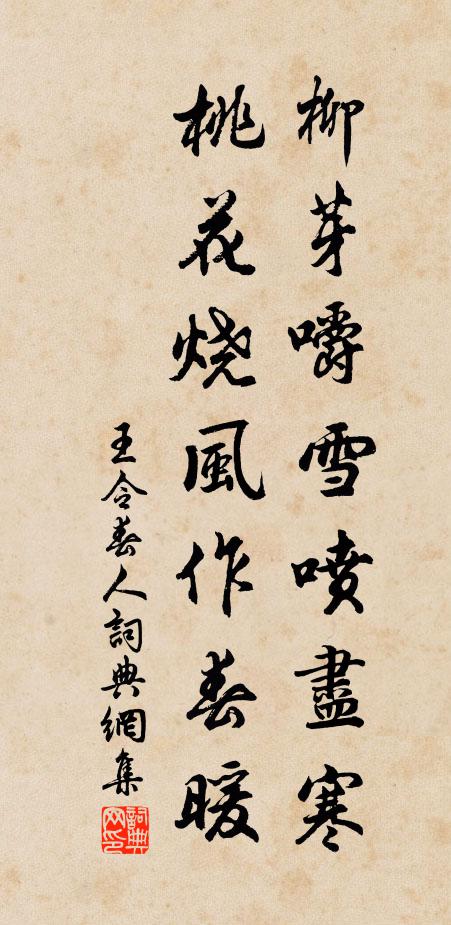 柳芽嚼雪噴盡寒
桃花燒風作春暖
王令春人詞典網集
詞典网印